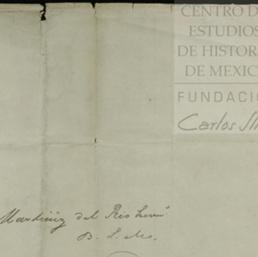 CENTRO D
ESTUDIOS
DE HISTOR
DE MEXIC
FUNDACIÓ
Carlos Sl
Martinez del Rio
B. L. M.